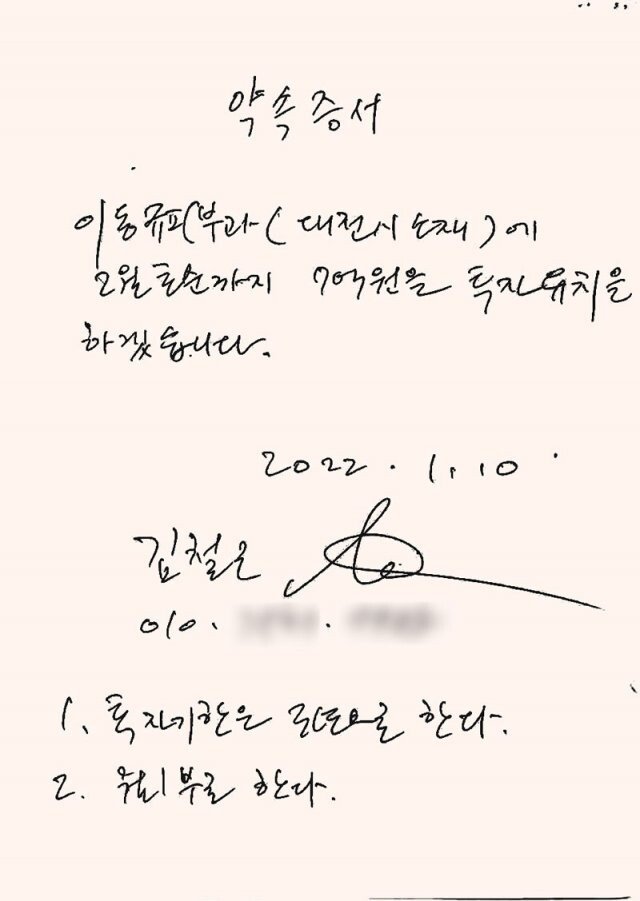 약속증서
이동규피부과(대전시 소재)에
2월초순까지 7억원을 투자유치를
하겠습니다.
2022. 1. 10
김철근
010.
1. 투자기한은 로 한다.
2. 월1부로 한다.